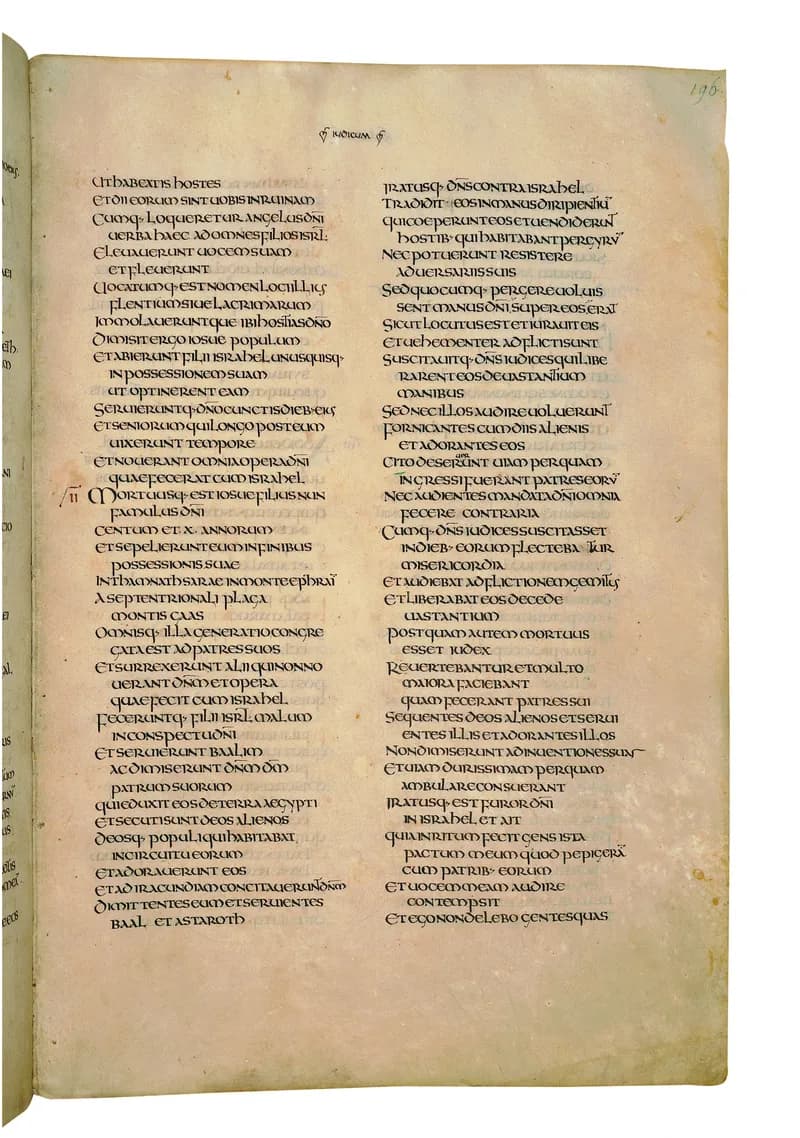 196
IUDICUM
UT HABEATIS HOSTES
ET DII EORUM SINT UOBIS IN RUINAM
CUMQ· LOQUERETUR ANGELUS DN̄I
UERBA HAEC AD OMNES FILIOS ISRL̄·
ELEUAUERUNT UOCEM SUAM
ET FLEUERUNT
UOCATUMQ· EST NOMEN LOCI ILLIUS
FLENTIUM SIUE LACRIMARUM
IMMOLAUERUNTQUE IBI HOSTIAS DN̄O
DIMISIT ERGO IOSUE POPULUM
ET ABIERUNT FILII ISRAHEL UNUSQUISQ·
IN POSSESSIONEM SUAM
UT OPTINERENT EAM
SERUIERUNTQ· DN̄O CUNCTIS DIEB· EIUS
ET SENIORUM QUI LONGO POST EUM
UIXERUNT TEMPORE
ET NOUERANT OMNIA OPERA DN̄I
QUAE FECERAT CUM ISRAHEL
II MORTUUSQ· EST IOSUE FILIUS NUN
FAMULUS DN̄I
CENTUM ET X· ANNORUM
ET SEPELIERUNT EUM IN FINIBUS
POSSESSIONIS SUAE
IN THAMNATHSARAE IN MONTE EPHRAĪ
A SEPTENTRIONALI PLAGA
MONTIS GAAS
OMNISQ· ILLA GENERATIO CONGRE
GATA EST AD PATRES SUOS
ET SURREXERUNT ALII QUI NON NO
UERANT DN̄M ET OPERA
QUAE FECIT CUM ISRAHEL
FECERUNTQ· FILII ISRL̄ MALUM
IN CONSPECTU DN̄I
ET SERUIERUNT BAALIM
AC DIMISERUNT DN̄M DM̄
PATRUM SUORUM
QUI EDUXIT EOS DE TERRA AEGYPTI
ET SECUTI SUNT DEOS ALIENOS
DEOSQ· POPULI QUI HABITABAT
IN CIRCUITU EORUM
ET ADORAUERUNT EOS
ET AD IRACUNDIAM CONCITAUERUNT DN̄M
DIMITTENTES EUM ET SERUIENTES
BAAL ET ASTAROTH
IRATUSQ· DN̄S CONTRA ISRAHEL
TRADIDIT EOS IN MANUS DIRIPIENTIŪ
QUI COEPERUNT EOS ET UENDIDERUNT
HOSTIB· QUI HABITABANT PER GYRŪ
NEC POTUERUNT RESISTERE
ADUERSARIIS SUIS
SED QUOCUMQ· PERGERE UOLUIS
SENT MANUS DN̄I SUPER EOS ERAT
SICUT LOCUTUS EST ET IURAUIT EIS
ET UEHEMENTER ADFLICTI SUNT
SUSCITAUITQ· DN̄S IUDICES QUI LIBE
RARENT EOS DE UASTANTIUM
MANIBUS
SED NEC ILLOS AUDIRE UOLUERUNT
FORNICANTES CUM DIIS ALIENIS
ET ADORANTES EOS
CITO DESERUERUNT UIAM PER QUAM
INGRESSI FUERANT PATRES EORŪ
NEC AUDIENTES MANDATA DN̄I OMNIA
FECERE CONTRARIA
CUMQ· DN̄S IUDICES SUSCITASSET
IN DIEB· EORUM FLECTEBATUR
MISERICORDIA
ET AUDIEBAT ADFLICTIONEM GEMITUS
ET LIBERABAT EOS DE CEDE
UASTANTIUM
POSTQUAM AUTEM MORTUUS
ESSET IUDEX
REUERTEBANTUR ET MULTO
MAIORA FACIEBANT
QUAM FECERANT PATRES SUI
SEQUENTES DEOS ALIENOS ET SERUI
ENTES ILLIS ET ADORANTES ILLOS
NON DIMISERUNT ADINUENTIONES SUAS
ET UIAM DURISSIMAM PER QUAM
AMBULARE CONSUERANT
IRATUSQ· EST FUROR DN̄I
IN ISRAHEL ET AIT
QUIA INRITUM FECIT GENS ISTA
PACTUM MEUM QUOD PEPIGERĀ
CUM PATRIB· EORUM
ET UOCEM MEAM AUDIRE
CONTEMPSIT
ET EGO NON DELEBO GENTES QUAS